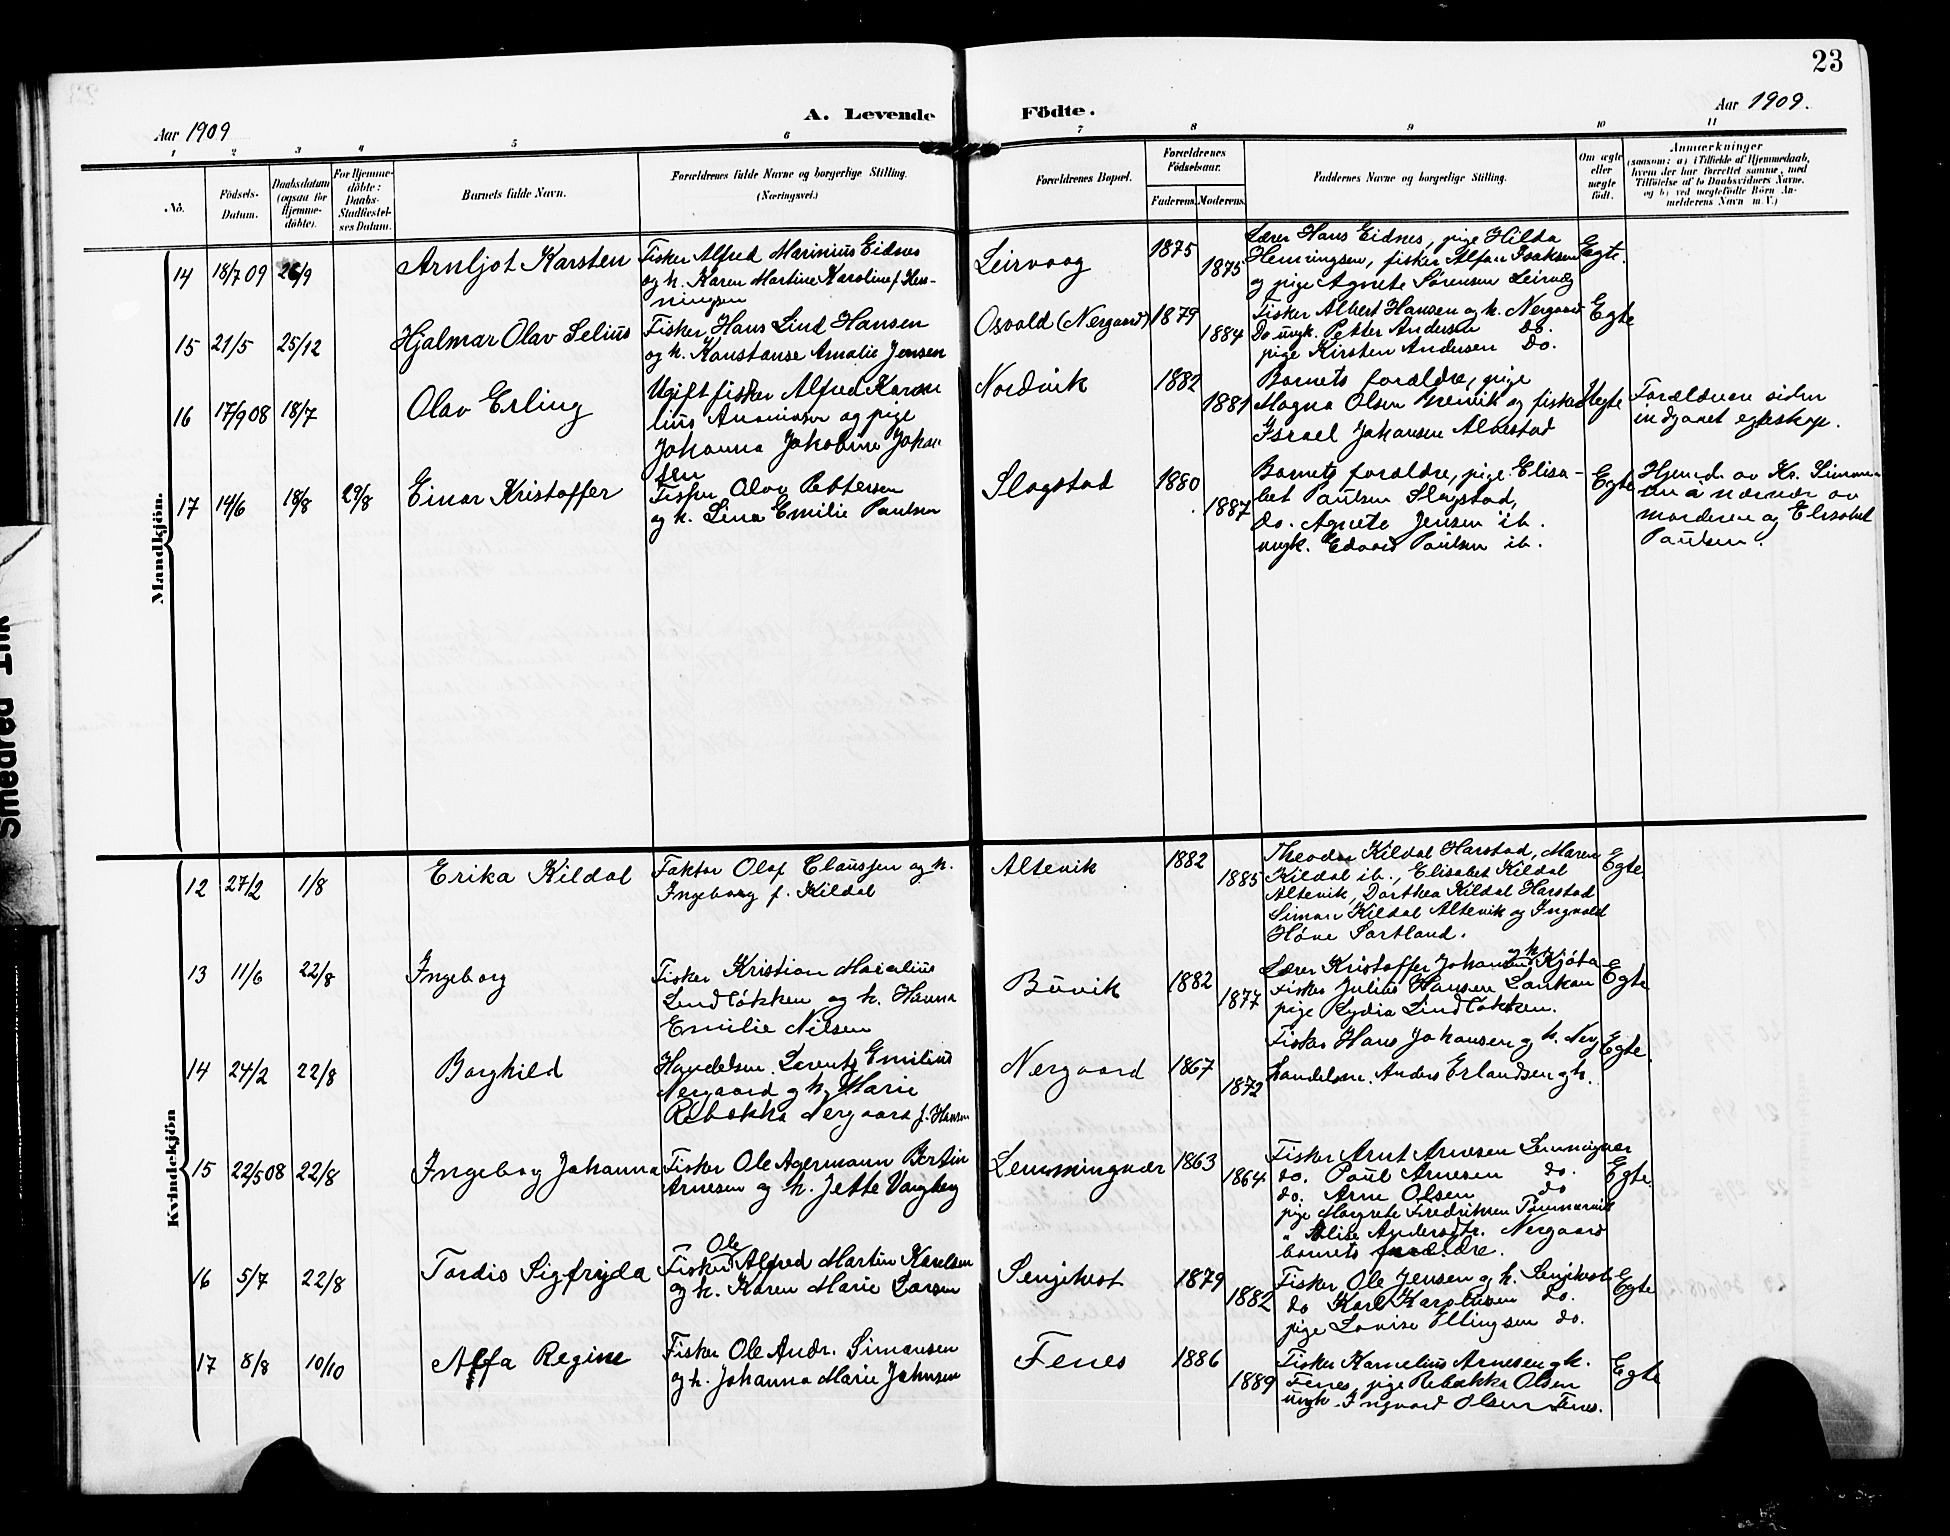 23
A. Levende Födte.
Aar 1909
Aar 1909.
1 2 3 4 5 6 7 8 9 10 11
No.
Födsels-
Datum.
Daabsdatum
(ogsaa for
Hjemme-
döbte).
For Hjemme-
döbte:
Daabs-
Stadfæstel-
ses Datum.
Barnets fulde Navn.
Forældrenes fulde Navne og borgerlige Stilling.
(Næringsvei.)
Forældrenes Bopæl.
Forældrenes
Födselsaar.
Faderens.
Moderens.
Faddernes Navne og borgerlige Stilling.
Om ægte
eller
uægte
födt.
Anmærkninger
(saasom: a) i Tilfælde af Hjemmedaab,
hvem der har forrettet samme, med
Tilföielse af to Daabsvidners Navne,
og b) ved uægtefödte Börn An-
melderens Navn m. V.)
Mandkjön.
14 18/7 09 26/9 Arnljot Karsten
Fisker Alfred Marinius Eidnes
og h. Karen Martine Karoline f. Hen-
ningsen
Leirvaag 1875 1875
Lærer Hans Eidnes, pige Hilda
Henningsen, fisker Alfon Isaksen
og pige Agnete Sørensen Leirvåg
Egte.
15 21/5 25/12 Hjalmar Olav Selius
Fisker Hans Lind Hansen
og h. Konstanse Amalie Jensen
Osvold (Nergaard) 1879 1884
Fisker Albert Hansen og h. Nergaard
Do ungk. Petter Andersen Do.
pige Kirsten Andersen Do.
Egte
16 17/9 08 18/7 Olav Erling
Ugift fisker Alfred Karne
lius Ananiassen og pige
Johanna Jakobine Johan
sen
Nordvik 1882 1881
Barnets forældre, pige
Magna Olsen Grenvik og fisker
Israel Johansen Albestad
Uegte
Forældrene siden
indgaaet egteskap.
17 14/6 18/8 29/8 Einar Kristoffer
Fisker Olav Pettersen
og h. Lina Emilie Paulsen
Slagstad 1880 1887
Barnets forældre, pige Elisa-
bet Paulsen Slagstad,
do. Agnete Jensen ib.
ungk. Edvard Paulsen ib.
Egte
Hjemd. av Kr. Simon
sen i nærvær av
moderen og Elisabet
Paulsen.
Kvindekjön
12 27/2 1/8 Erika Kildal
Faktor Olaf Claussen og h.
Ingeborg f. Kildal
Altevik 1882 1885
Theodor Kildal Harstad, Maren
Kildal ib., Elisabet Kildal
Altevik, Dorthea Kildal Harstad
Simon Kildal Altevik og Ingvald
Høve Sortland.
Egte
13 11/6 22/8 Ingeborg
Fisker Kristian Marelius
Lind Løkken og h. Hanna
Emilie Nilsen
Buvik 1882 1877
Lærer Kristoffer Johansen og h. Kjøta
Fisker Julius Hansen Laukan
pige Lydia Lind Løkken.
Egte
14 24/2 22/8 Borghild
Handelsm. Lorents Emilius
Nergaard og h. Marie
Rebekka Nergaard f. Hansen
Nergaard 1867 1872
Fisker Hans Johansen og h. Nerg
Handelsm. Anders Erlandsen og h.
Egte
15 22/5 08 22/8 Ingeborg Johanna
Fisker Ole Agermann Bertin
Arnesen og h. Jette Vangberg
Lemmingvær 1863 1864
Fisker Arnt Arnesen Lemmingvær
do. Paul Arnesen do.
do. Arne Olsen do
pige Margrete Fredriksen Tømmervik
" Alise Andersdtr. Nergaard
barnets forældre.
Egte
16 5/7 22/8 Tordis Sigfryda
Fisker Ole Alfred Martin Karelsen
og h. Karen Marie Larsen
Senjehest 1879 1882
Fisker Ole Jensen og h. Senjehest
do Karl Karolisen do.
pige Lovise Ellingsen do.
Egte
17 8/8 10/10 Alfa Regine
Fisker Ole Andr. Simonsen
og h. Johanna Marie Johnsen
Fenes 1886 1889
Fisker Kornelius Arnesen og h.
Fenes, pige Rebekka Olsen
ungk. Ingvard Olsen Fenes.
Egte